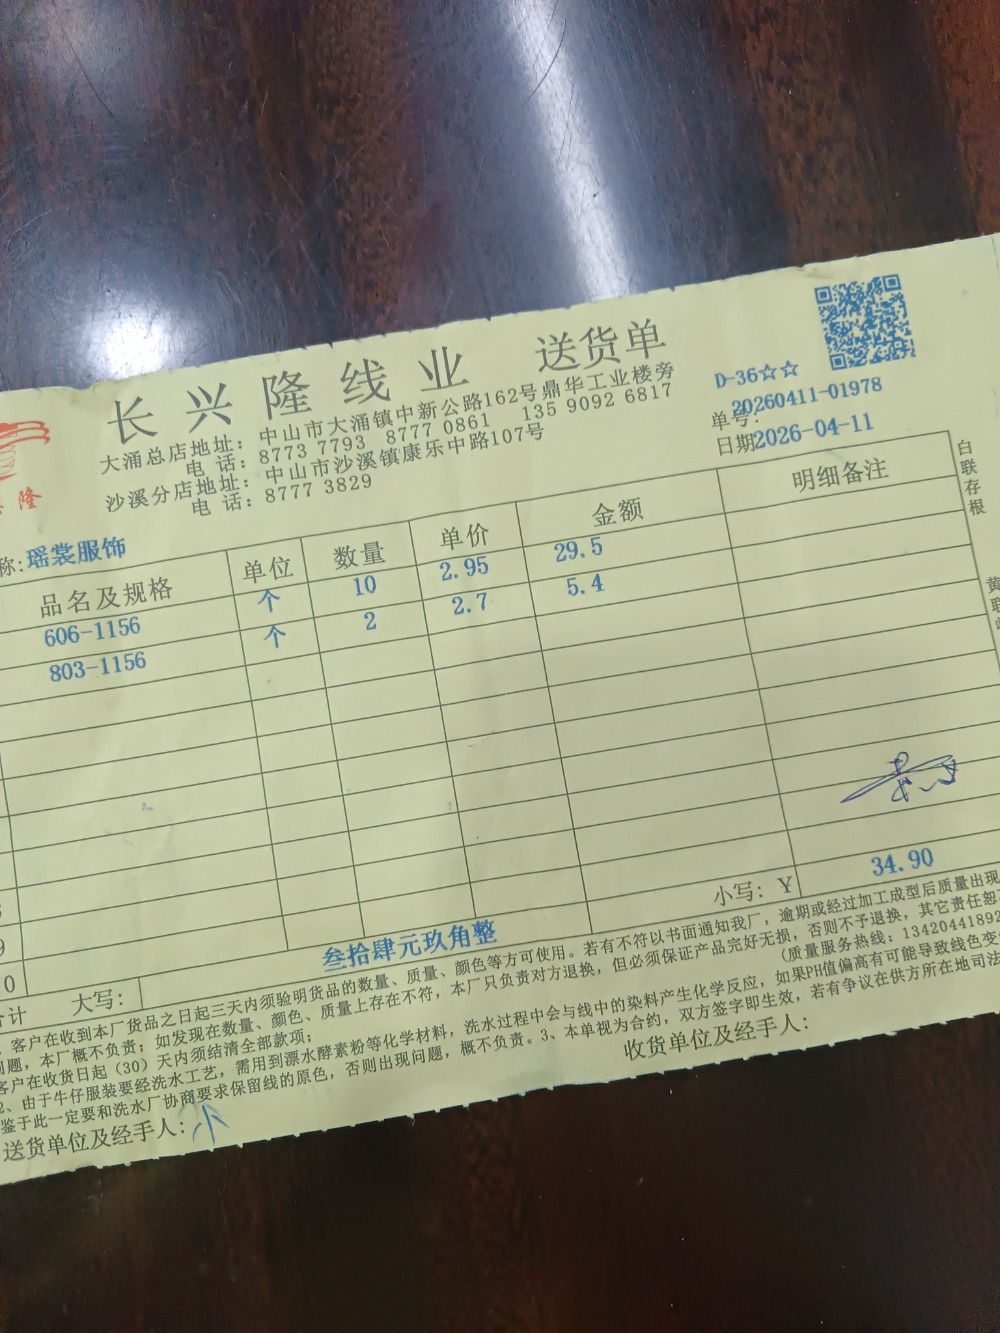 长兴隆线业 送货单
大涌总店地址：中山市大涌镇中新公路162号鼎华工业楼旁
电 话：8773 7793 8777 0861 135 9092 6817
沙溪分店地址：中山市沙溪镇康乐中路107号
电 话：8777 3829
D-36☆☆
单号：20260411-01978
日期2026-04-11
隆
称:瑶裳服饰
品名及规格 单位 数量 单价 金额 明细备注
606-1156 个 10 2.95 29.5
803-1156 个 2 2.7 5.4
9
0
合计 大写： 叁拾肆元玖角整 小写：¥ 34.90
客户在收到本厂货品之日起三天内须验明货品的数量、质量、颜色等方可使用。若有不符以书面通知我厂，逾期或经过加工成型后质量出现
问题，本厂概不负责；如发现在数量、颜色、质量上存在不符，本厂只负责对方退换，但必须保证产品完好无损，否则不予退换，其它责任恕
客户在收货日起（30）天内须结清全部款项； (质量服务热线：1342044189
2、由于牛仔服装要经洗水工艺，需用到漂水酵素粉等化学材料，洗水过程中会与线中的染料产生化学反应，如果PH值偏高有可能导致线色变
鉴于此一定要和洗水厂协商要求保留线的原色，否则出现问题，概不负责。3、本单视为合约，双方签字即生效，若有争议在供方所在地司法
送货单位及经手人：小 收货单位及经手人：
白联存根
黄联